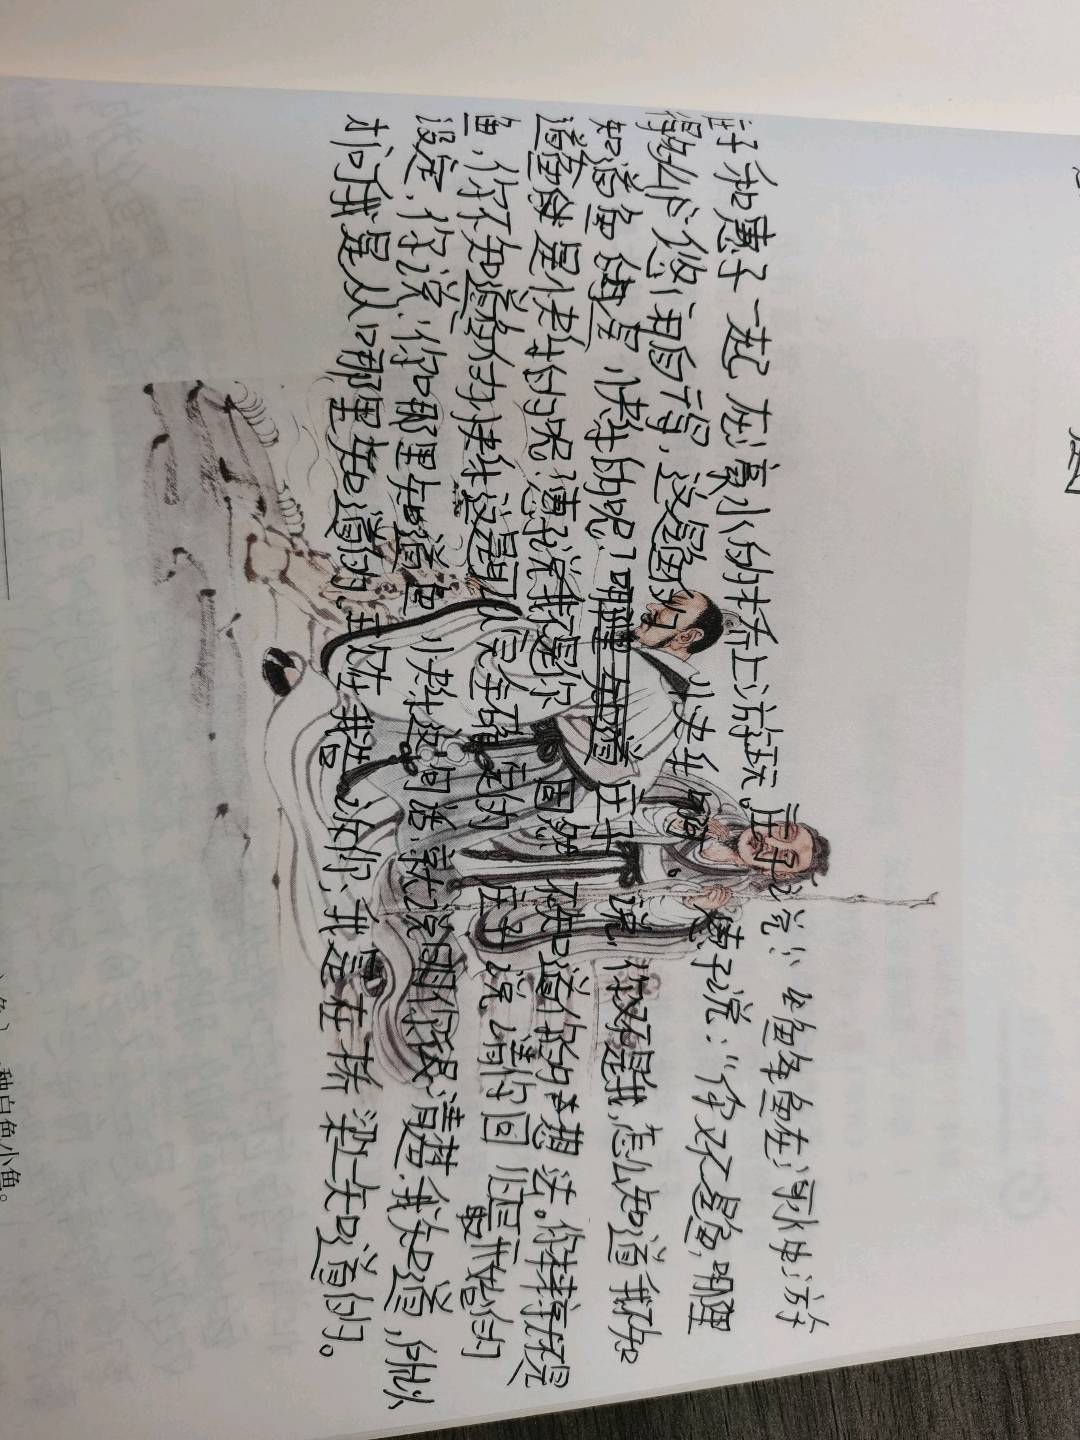 庄子和惠子一起在濠水的桥上游玩。庄子说:“鱼在濠水中游
得如此悠闲自得,这是鱼的快乐啊。惠子说:“你不是鱼,哪里
知道鱼的快乐的呢?哪里知道 庄子说,你不是我,怎么知道我不知
道鱼就是快乐的呢?惠子说我不是你 固然不知道你的想法。你本来就不是
鱼,你不知道鱼的快乐这是可以完全确定的 庄子说 请你回归最开始的
设定,你说,你哪里知道鱼快乐这句话,就说明你很清楚,我知道,所以
才问我是从哪里知道的,现在我告诉你,我是在桥梁上知道的。
种白鱼小鱼。